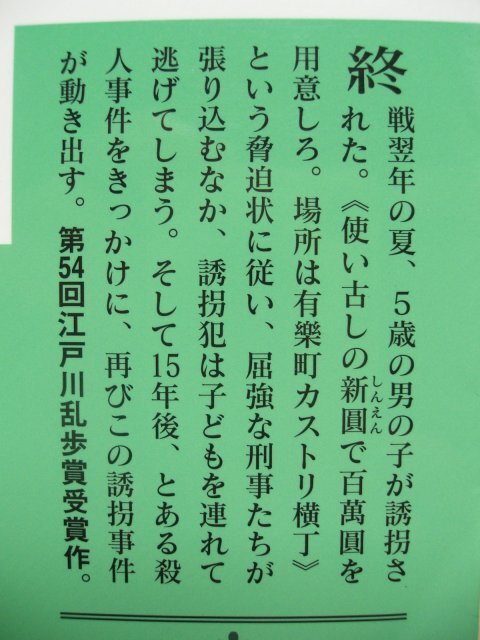 終戦翌年の夏、5歳の男の子が誘拐さ
れた。《使い古しの新圓で百萬圓を
しんえん
用意しろ。場所は有樂町カストリ横丁》
という脅迫状に従い、屈強な刑事たちが
張り込むなか、誘拐犯は子どもを連れて
逃げてしまう。そして15年後、とある殺
人事件をきっかけに、再びこの誘拐事件
が動き出す。第54回江戸川乱歩賞受賞作。